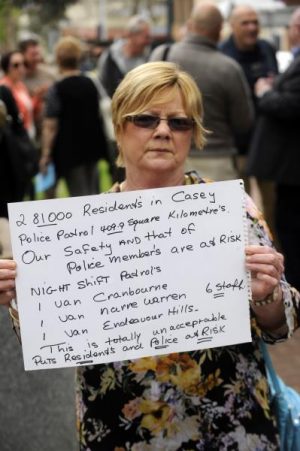 281000 Residents in Casey
Police Patrol 409.9 Square Kilometre's.
Our Safety AND that of
Police members are at RISK
NIGHT Shift Patrol's
1 van Cranbourne
1 van narre warren 6 Staff
1 van Endeavour Hills.
This is totally unacceptable
Puts Residents and Police at RISK